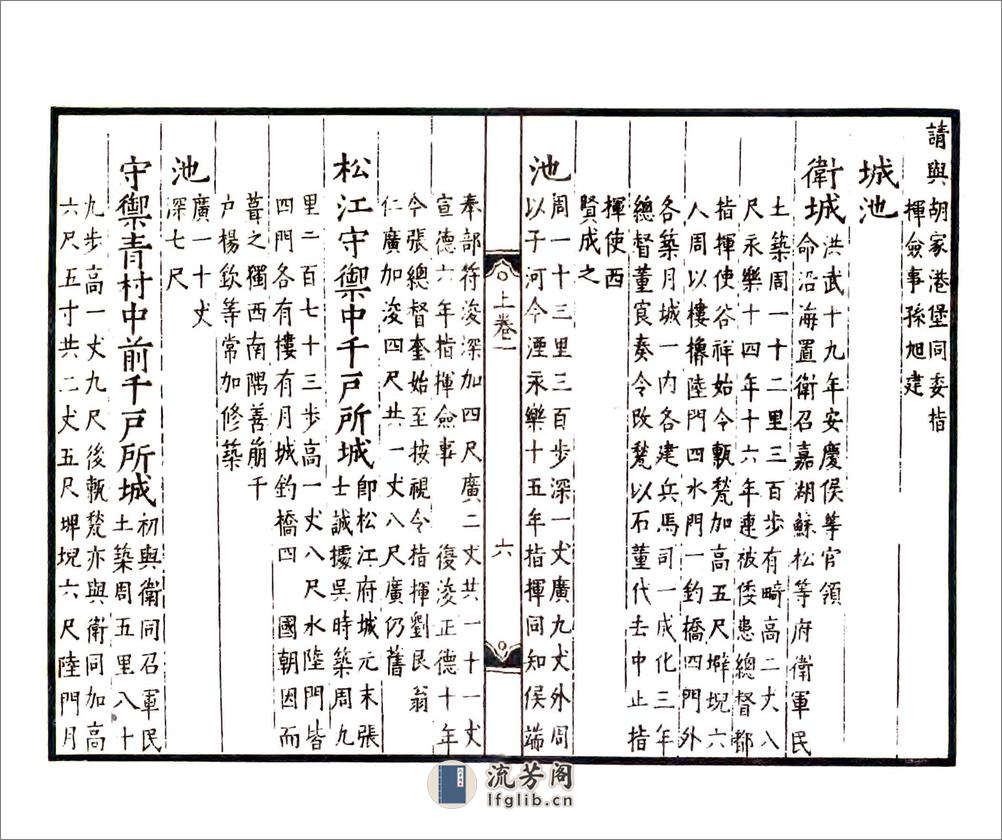 請與胡家港堡同委指
揮僉事孫旭建
城池
衛城
洪武十九年安慶侯等官領
命沿海置衛召嘉湖蘇松等府衛軍民
土築周一十二里三百步有畸高二丈八
尺永樂十四年十六年連被倭患總督都
指揮使谷祥始令甎甃加高五尺睥堄六
人周以樓櫓陸門四水門一釣橋四門外
各築月城一內各建兵馬司一成化三年
總督董良奏令改甃以石董代去中止指
揮使西
賢成之
池
周一十三里三百步深一丈廣九丈外周
以子河今湮永樂十五年指揮同知侯端
上卷一
六
奉部符浚深加四尺廣二丈共一十一丈
宣德六年指揮僉事 復浚正德十年
今張總督奎始至按視令指揮劉民翁
仁廣加浚四尺共一丈八尺廣仍舊
松江守禦中千戶所城
即松江府城元末張
士誠據吳時築周九
里二百七十三步高一丈八尺水陸門皆
四門各有樓有月城釣橋四 國朝因而
葺之獨西南隅善崩千
戶楊欽等常加修築
池
廣一十丈
深七尺
守禦青村中前千戶所城
初與衛同召軍民
土築周五里八十
九步高一丈九尺後甎甃亦與衛同加高
六尺五寸共二丈五尺埤堄六尺陸門月
流芳阁
lfglib.cn